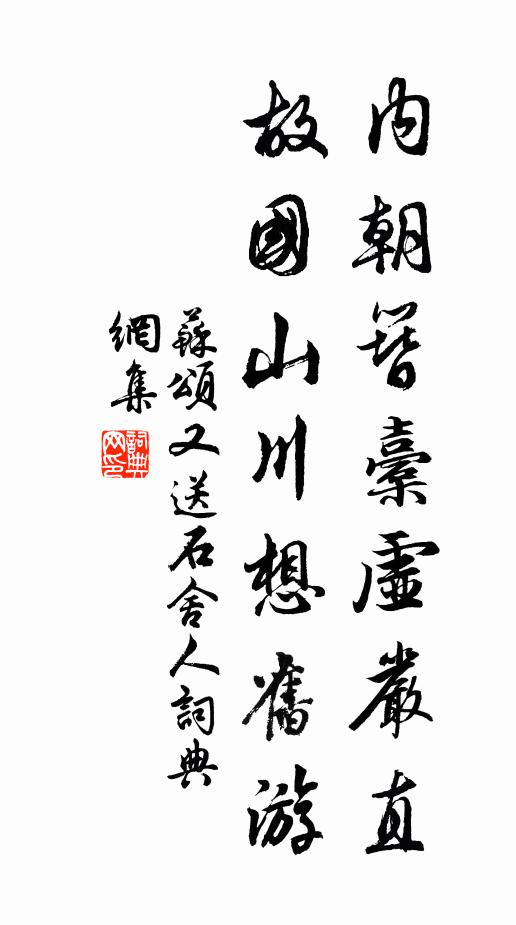 內朝簪橐虛嚴直
故國山川想舊游
蘇頌又送石舍人詞典
網集
詞典網印